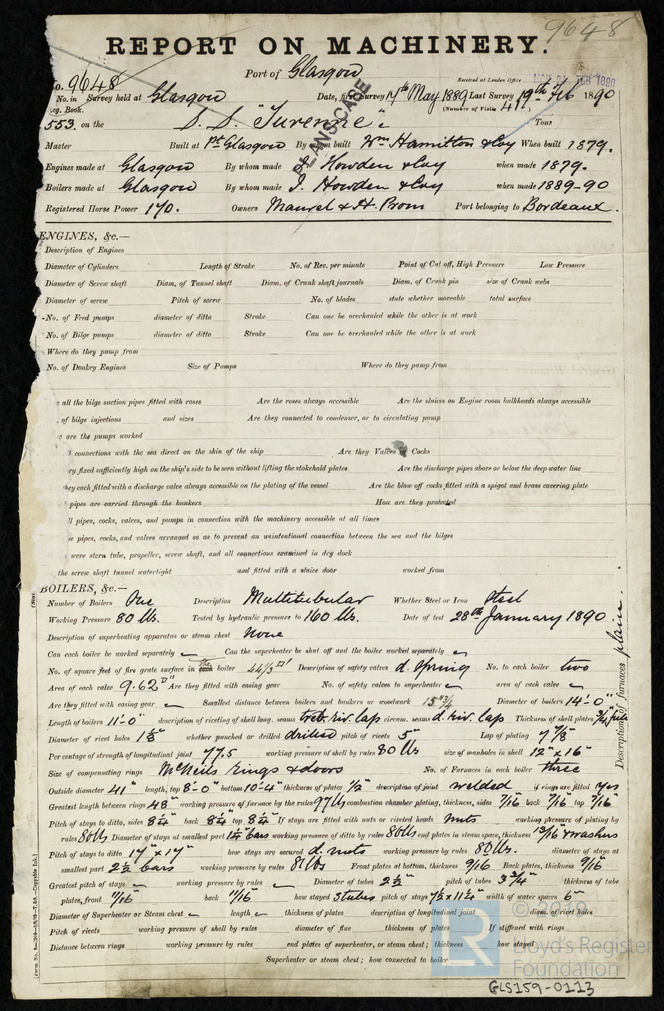 9648
REPORT ON MACHINERY.
Port of Glasgow
Received at London Office
No. 9648
No. in Survey held at Glasgow Date, first Survey 14th May 1889 Last Survey 19th Feb 1890
Reg. Book. (Number of Visits 41)
553. on the S.S. "Turenne" Tons
PLANS CASE
Master Built at Pt Glasgow By whom built Wm Hamilton & Coy When built 1879.
Engines made at Glasgow By whom made Howden & Coy when made 1879.
Boilers made at Glasgow By whom made J. Howden & Coy when made 1889-90
Registered Horse Power 170. Owners & H. Prom Port belonging to Bordeaux.
ENGINES, &c.—
Description of Engines
Diameter of Cylinders Length of Stroke No. of Rev. per minute Point of Cut off, High Pressure Low Pressure
Diameter of Screw shaft Diam. of Tunnel shaft Diam. of Crank shaft journals Diam. of Crank pin size of Crank webs
Diameter of screw Pitch of screw No. of blades state whether moveable total surface
No. of Feed pumps diameter of ditto Stroke Can one be overhauled while the other is at work
No. of Bilge pumps diameter of ditto Stroke Can one be overhauled while the other is at work
Where do they pump from
No. of Donkey Engines Size of Pumps Where do they pump from
all the bilge suction pipes fitted with roses Are the roses always accessible Are the sluices on Engine room bulkheads always accessible
of bilge injections and sizes Are they connected to condenser, or to circulating pump
are the pumps worked
connections with the sea direct on the skin of the ship Are they Valves or Cocks
fixed sufficiently high on the ship's side to be seen without lifting the stokehold plates Are the discharge pipes above or below the deep water line
they each fitted with a discharge valve always accessible on the plating of the vessel Are the blow off cocks fitted with a spigot and brass covering plate
pipes are carried through the bunkers How are they protected
pipes, cocks, valves, and pumps in connection with the machinery accessible at all times
pipes, cocks, and valves arranged so as to prevent an unintentional connection between the sea and the bilges
were stern tube, propeller, screw shaft, and all connections examined in dry dock
the screw shaft tunnel watertight and fitted with a sluice door worked from
BOILERS, &c.—
Number of Boilers One Description Multitubular Whether Steel or Iron Steel
Working Pressure 80 lbs. Tested by hydraulic pressure to 160 lbs. Date of test 28th January 1890
Description of superheating apparatus or steam chest None
Can each boiler be worked separately Can the superheater be shut off and the boiler worked separately
No. of square feet of fire grate surface in the boiler 44 1/3 □' Description of safety valves d. Spring No. to each boiler two
Area of each valve 9.62 □" Are they fitted with easing gear No. of safety valves to superheater area of each valve
Are they fitted with easing gear Smallest distance between boilers and bunkers or woodwork Diameter of boilers 14'-0"
Length of boilers 11'-0" description of riveting of shell long. seams treb. riv. lap circum. seams d. riv. lap Thickness of shell plates
Diameter of rivet holes whether punched or drilled drilled pitch of rivets 5" Lap of plating 7 7/8"
Percentage of strength of longitudinal joint 77.5 working pressure of shell by rules 80 lbs size of manholes in shell 12" × 16"
Size of compensating rings McNeils rings & doors No. of Furnaces in each boiler three
Outside diameter 41" length, top 8'-0" bottom 10'-4" thickness of plates 1/2" description of joint welded if rings are fitted yes
Greatest length between rings 48" working pressure of furnace by the rules 97 lbs combustion chamber plating, thickness, sides 7/16 back 7/16 top 7/16"
Pitch of stays to ditto, sides 8 3/4" back 8 3/4 top 8 3/4" If stays are fitted with nuts or riveted heads nuts working pressure of plating by
rules 80 lbs Diameter of stays at smallest part 1 1/4" bars working pressure of ditto by rules 80 lbs end plates in steam space, thickness 13/16 & washers
Pitch of stays to ditto 17" × 17" how stays are secured d. nuts working pressure by rules 80 lbs. diameter of stays at
smallest part 2 1/2 bars working pressure by rules 81 lbs Front plates at bottom, thickness 9/16 Back plates, thickness 9/16"
Greatest pitch of stays working pressure by rules Diameter of tubes 2 1/2" pitch of tubes 3 3/4" thickness of tube
plates, front 11/16 back 11/16 how stayed S tubes pitch of stays 7 1/2 × 11 1/4" width of water spaces 6"
Diameter of Superheater or Steam chest length thickness of plates description of longitudinal joint diam. of rivet holes
Pitch of rivets working pressure of shell by rules diameter of flue thickness of plates If stiffened with rings
Distance between rings working pressure by rules end plates of superheater, or steam chest; thickness how stayed
Superheater or steam chest; how connected to boiler
Description of furnaces plain.
© 2019
LR
Lloyd's Register
Foundation
GLS159-0113